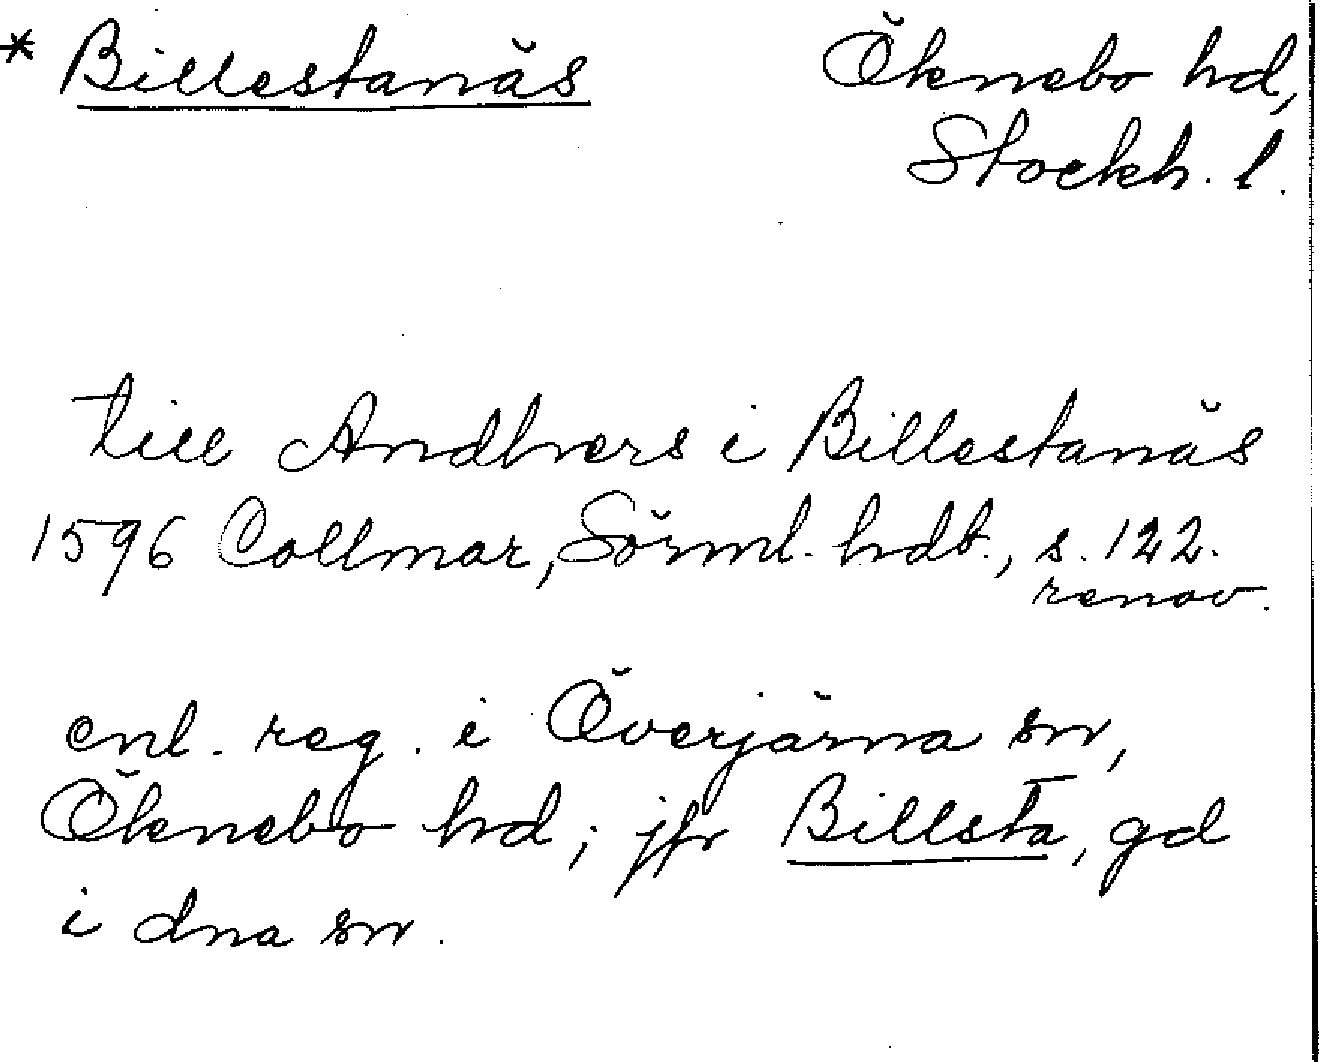 * Billestanäs Öknebo hd,
Stockh. l.
till Andhers i Billestanäs
1596 Collmar, Sörml. hdb., s. 122.
renov.
enl. reg. i Överjärna sn,
Öknebo hd; jfr Billsta, gd
i dna sn.